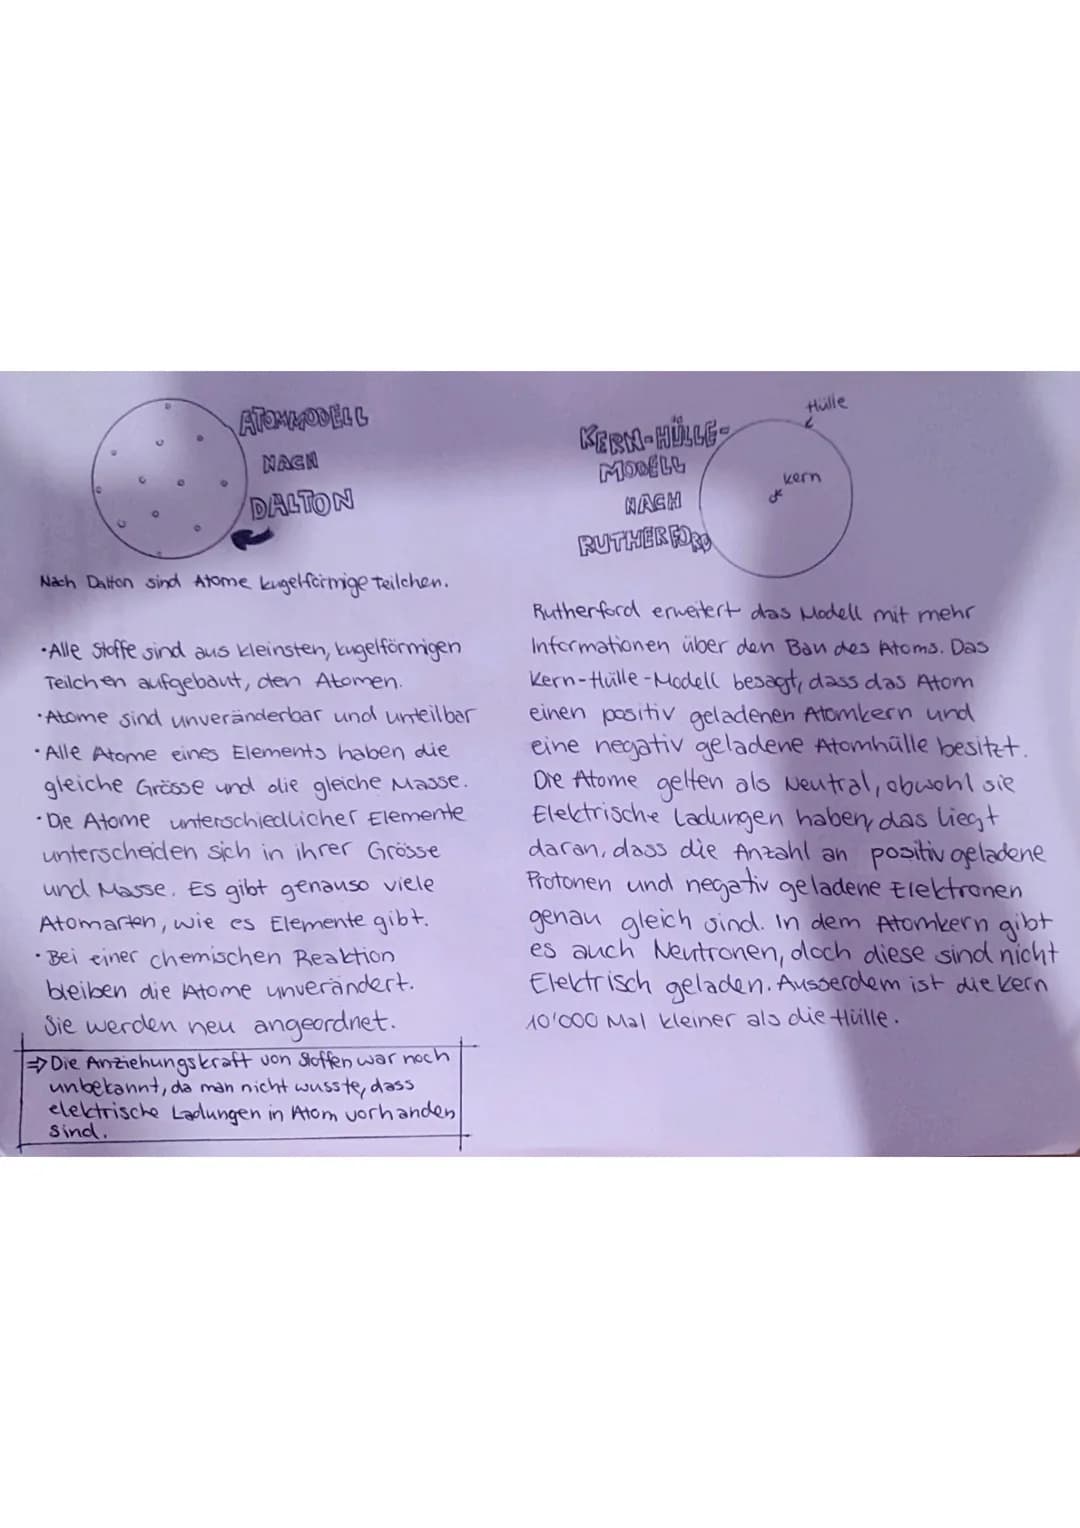 ATOMMODELL
NACH
DALTON
Nach Dalton sind Atome kugelförmige Teilchen.
·Alle Stoffe sind aus kleinsten, kugelförmigen
Teilchen aufgebaut, den Atomen.
·Atome sind unveränderbar und unteilbar
·Alle Atome eines Elements haben die
gleiche Grösse und die gleiche Masse.
·Die Atome unterschiedlicher Elemente
unterscheiden sich in ihrer Grösse
und Masse. Es gibt genauso viele
Atomarten, wie es Elemente gibt.
·Bei einer chemischen Reaktion
bleiben die Atome unverändert.
Sie werden neu angeordnet.
⇒ Die Anziehungskraft von Stoffen war noch
unbekannt, da man nicht wusste, dass
elektrische Ladungen in Atom vorhanden
sind.
KERN-HÜLLE-
MODELL
NACH
RUTHERFORD
Hülle
Kern
Rutherford erweitert das Modell mit mehr
Informationen über den Bau des Atoms. Das
Kern-Hülle-Modell besagt, dass das Atom
einen positiv geladenen Atomkern und
eine negativ geladene Atomhülle besitzt.
Die Atome gelten als Neutral, obwohl sie
Elektrische Ladungen haben, das liegt
daran, dass die Anzahl an positiv geladene
Protonen und negativ geladene Elektronen
genau gleich sind. In dem Atomkern gibt
es auch Neutronen, doch diese sind nicht
Elektrisch geladen. Ausserdem ist die Kern
10'000 Mal kleiner als die Hülle.